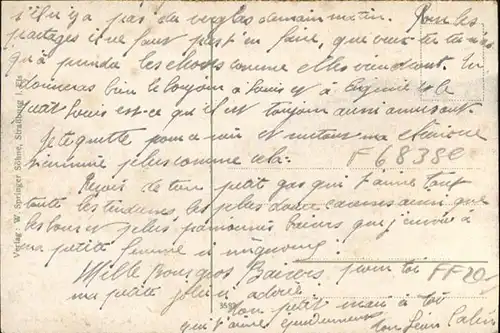 s'il n'y a pas du verglas demain matin. Pour les
partages il ne faut pas t'en faire, que veux tu tu n'as
qu'à prendre les choses comme elles viendront. Tu
donneras bien le bonjour à Louis et à Eugénie et le
petit Louis est-ce qu'il est toujours aussi amusant.
Je te quitte pour ce soir et surtout ma chérie ne
t'ennuie plus comme cela.
F 6838e
Reçois de ton petit gas qui t'aime
toute les tendresses, les plus douces caresses ainsi que
les plus passionnés baisers que j'envoie à
ma petite femme si mignonne.
Mille gros gros Baisers pour toi
FF 20
ma petite adorée
Ton petit mari à toi
qui t'aime
Ton Léon
Verlag W. Springer Söhne, Strassburg i. Els.